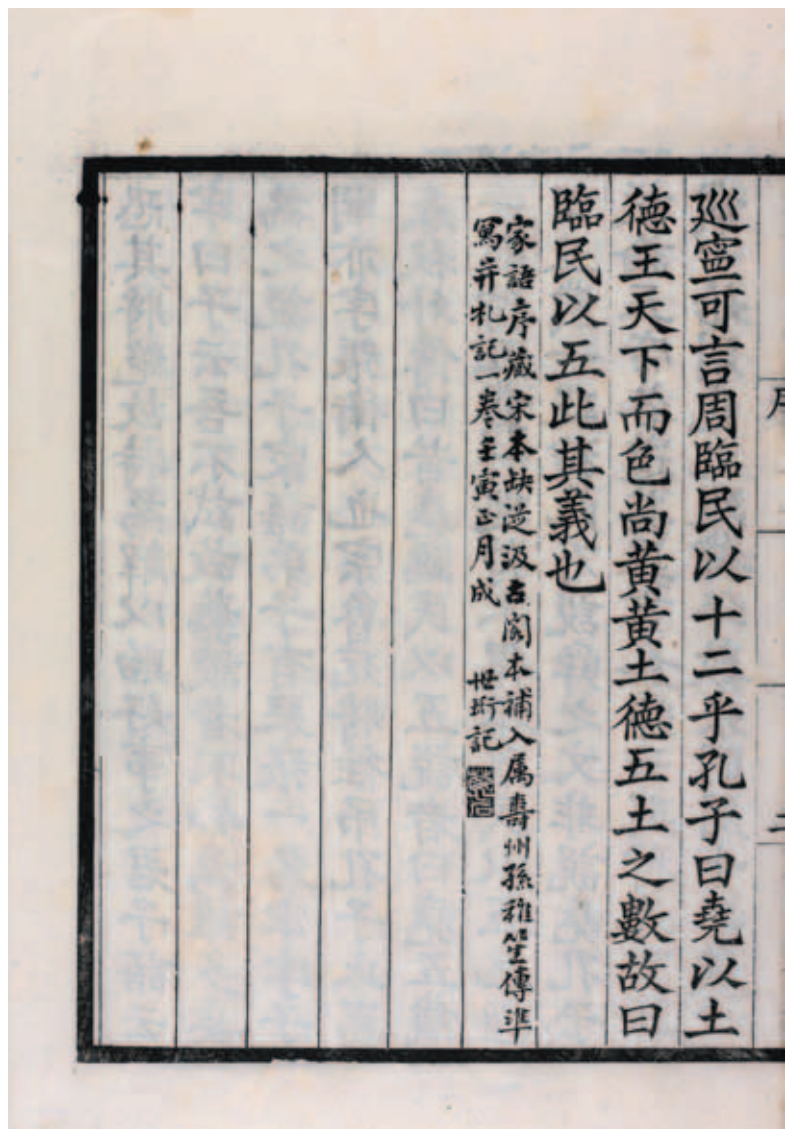 廵寍可言周臨民以十二乎孔子曰堯以土
德王天下而色尚黄黄土德五土之數故曰
臨民以五此其義也
家語序蔵宋本缺從汲古閣本補入属壽州孫稚筀傳準
寫并札記一卷壬寅正月成 世珩記
序
二